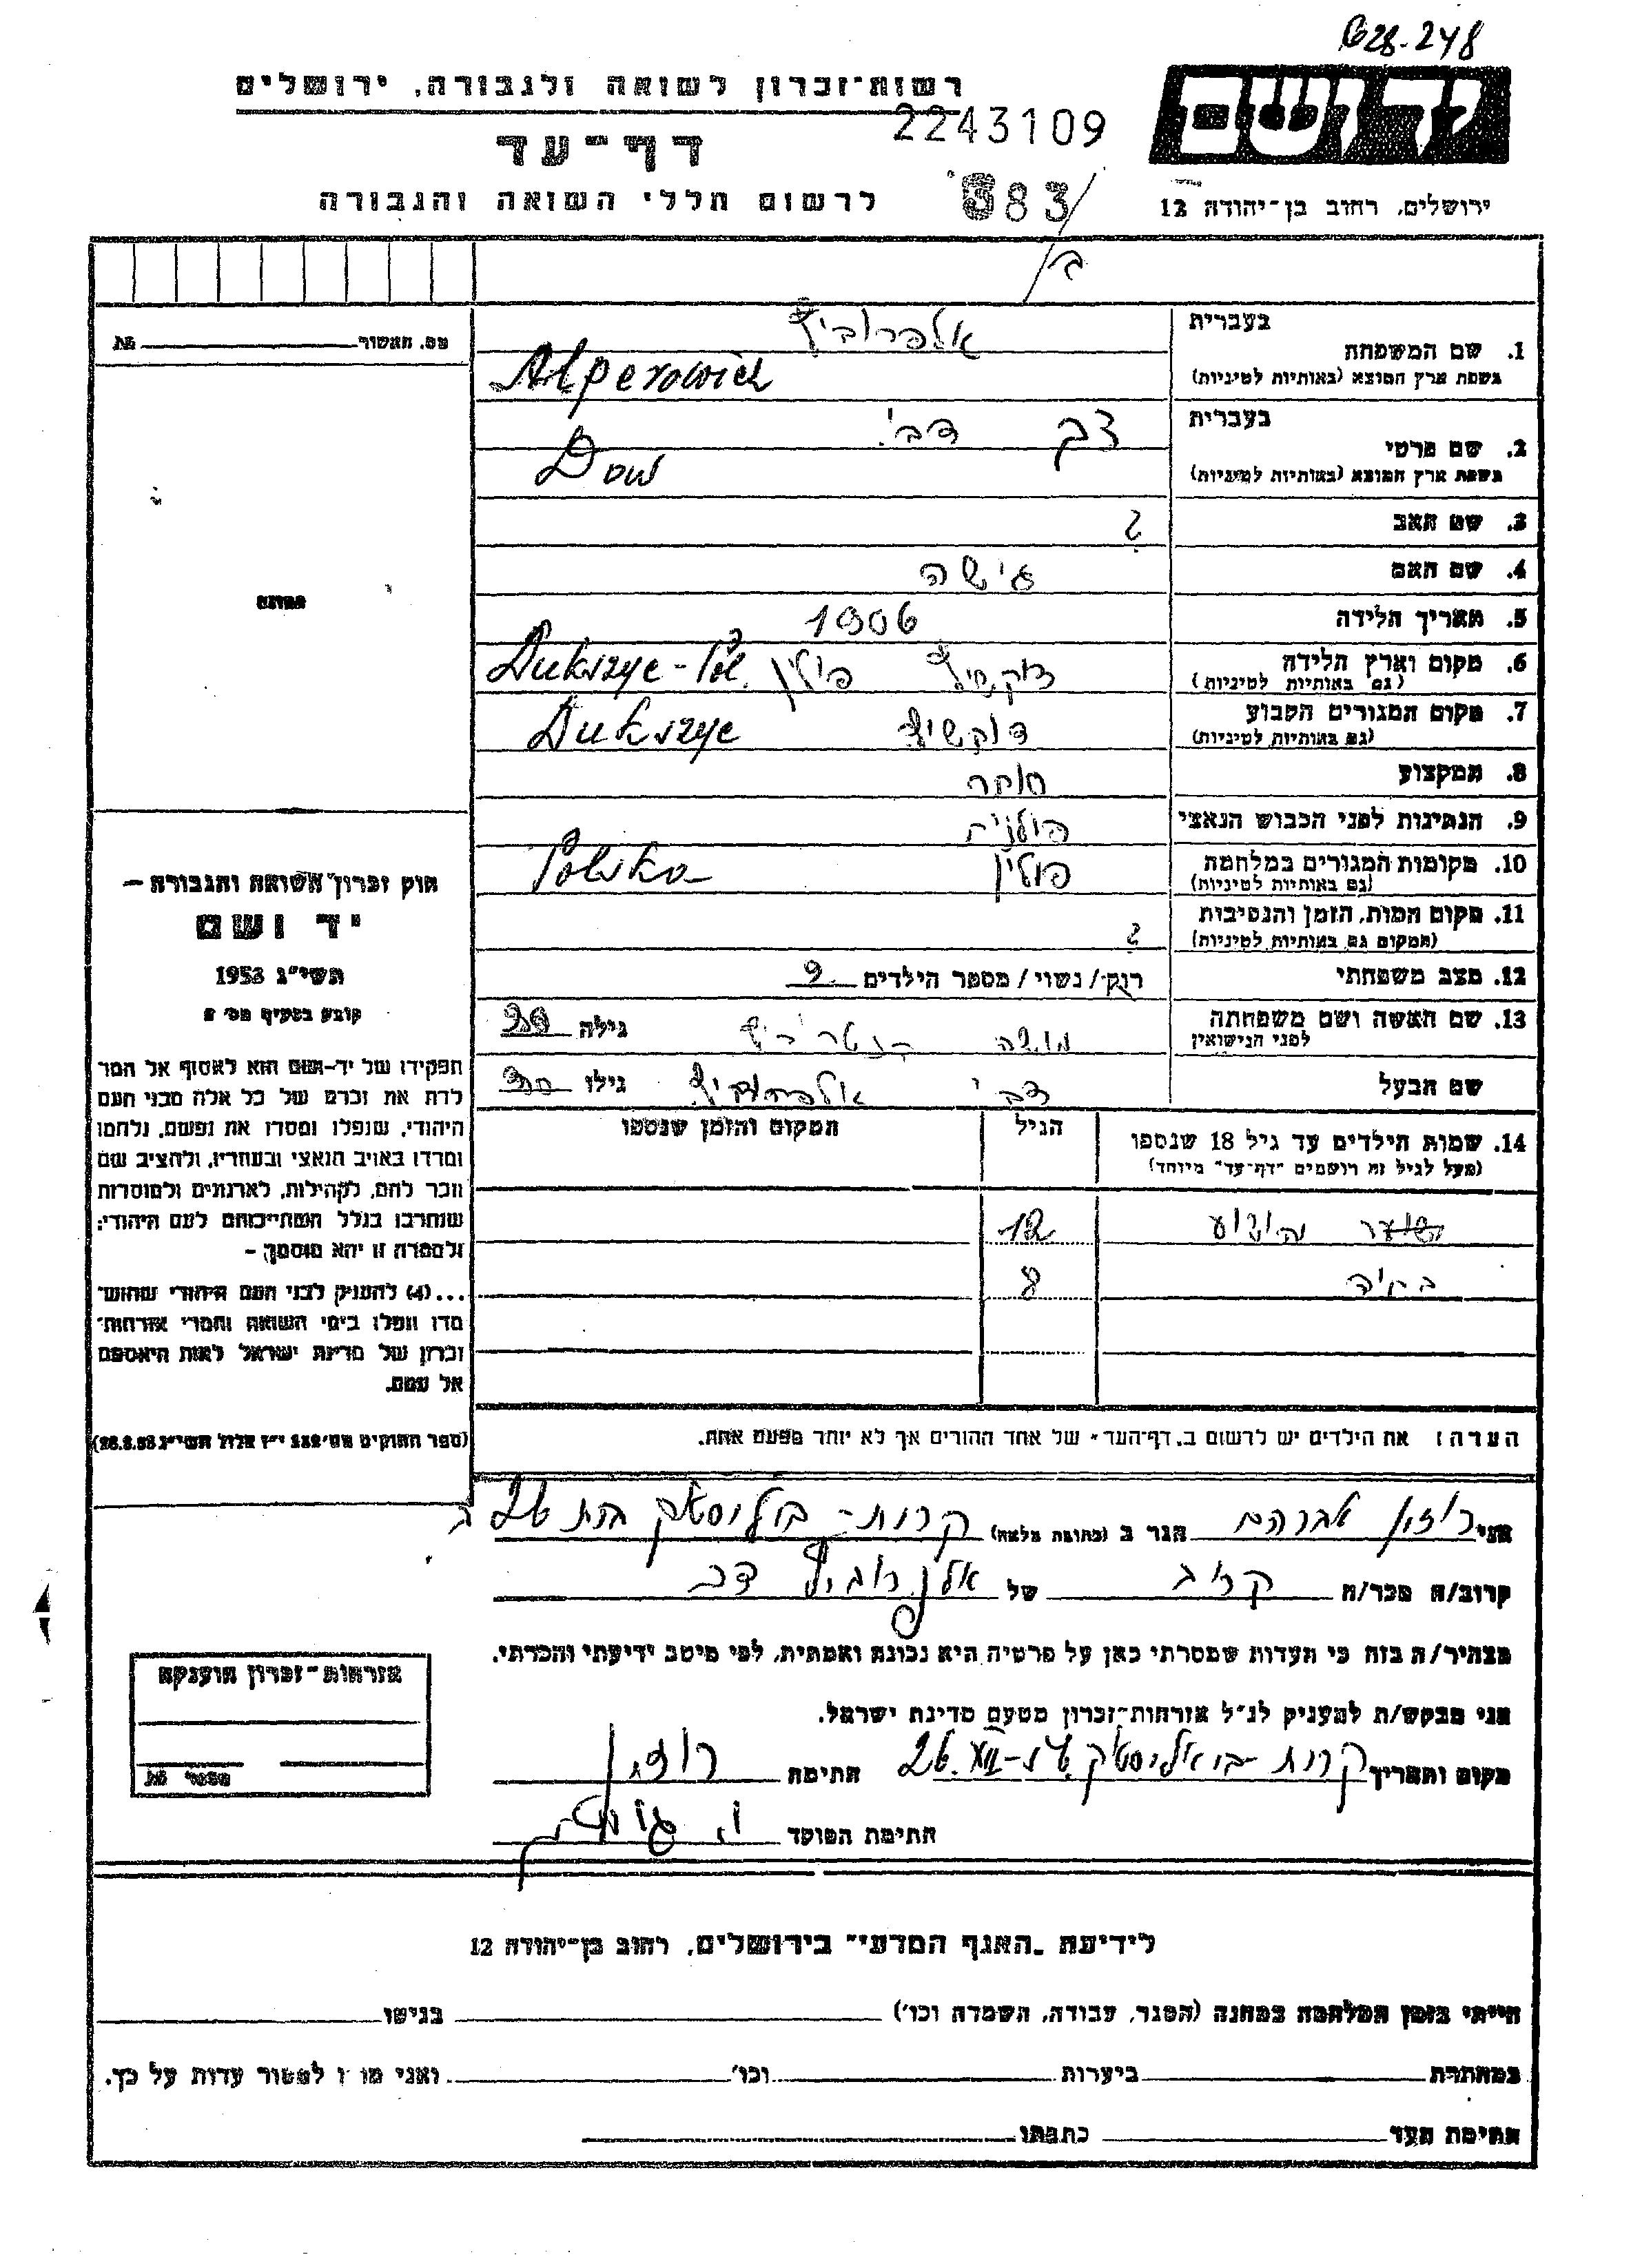 B28-248
רשות-זכרון לשואה ולגבורה, ירושלים
יד ושם
2243109
דף-עד
לרשום חללי השואה והגבורה
383/
ירושלים, רחוב בן-יהודה 12
ב
מס. האשור № 
בעברית אלפרוביץ
1. שם המשפחה
בשפת ארץ המוצא (באותיות לטיניות) Alperowich
בעברית דב
2. שם פרטי
בשפת ארץ המוצא (באותיות לטיניות) Dow
3. שם האב ?
4. שם האם
תמונה
5. תאריך הלידה 1906
6. מקום וארץ הלידה פולין Dukszyc-Pol.
(גם באותיות לטיניות)
7. מקום המגורים הקבוע דוקשיץ Dukszyc
(גם באותיות לטיניות)
8. המקצוע סוחר
9. הנתינות לפני הכבוש הנאצי פולנית
10. מקומות המגורים במלחמה פולין Polska
(גם באותיות לטיניות)
11. מקום המות, הזמן והנסיבות ?
(המקום גם באותיות לטיניות)
12. מצב משפחתי רווק/ נשוי/ מספר הילדים
13. שם האשה ושם משפחתה גילה
לפני הנישואין
שם הבעל אלפרוביץ גילו
14. שמות הילדים עד גיל 18 שנספו הגיל המקום והזמן שנספו
(מעל לגיל זה רושמים "דף-עד" מיוחד)
12
8
הערה: את הילדים יש לרשום ב"דף-העד" של אחד ההורים אך לא יותר מפעם אחת.
חוק זכרון השואה והגבורה –
יד ושם
תשי"ג 1953
קובע בסעיף מס' 2
תפקידו של יד-ושם הוא לאסוף אל המו־
לדת את זכרם של כל אלה מבני העם
היהודי, שנפלו ומסרו את נפשם, נלחמו
ומרדו באויב הנאצי ובעוזריו, ולהציב שם
וזכר להם, לקהילות, לארגונים ולמוסדות
שנחרבו בגלל השתייכותם לעם היהודי;
ולמטרה זו יהא מוסמך –
...(4) להעניק לבני העם היהודי שהוש־
מדו ונפלו בימי השואה והמרי אזרחות־
זכרון של מדינת ישראל לאות היאספם
אל עמם.
(ספר החוקים מס' 132 י"ז אלול תשי"ג 28.8.53)
אני רוזין אברהם הגר ב (כתובת מלאה) קרית-
קרוב/ה מכר/ה קרוב של אלפרוביץ דב
מצהיר/ה בזה כי העדות שמסרתי כאן על פרטיה היא נכונה ואמתית, לפי מיטב ידיעתי והכרתי.
אני מבקש/ת להעניק לנ"ל אזרחות-זכרון מטעם מדינת ישראל.
מקום ותאריך קרית חתימה
חתימת הפוקד
אזרחות-זכרון הוענקה
מספר №
לידיעת "האגף המדעי" בירושלים, רחוב בן-יהודה 12
הייתי בזמן המלחמה במחנה (הסגר, עבודה, השמדה וכו') בגיטו
במחתרת ביערות וכו' ואני מו ן למסור עדות על כך.
חתימת העד כתבתו